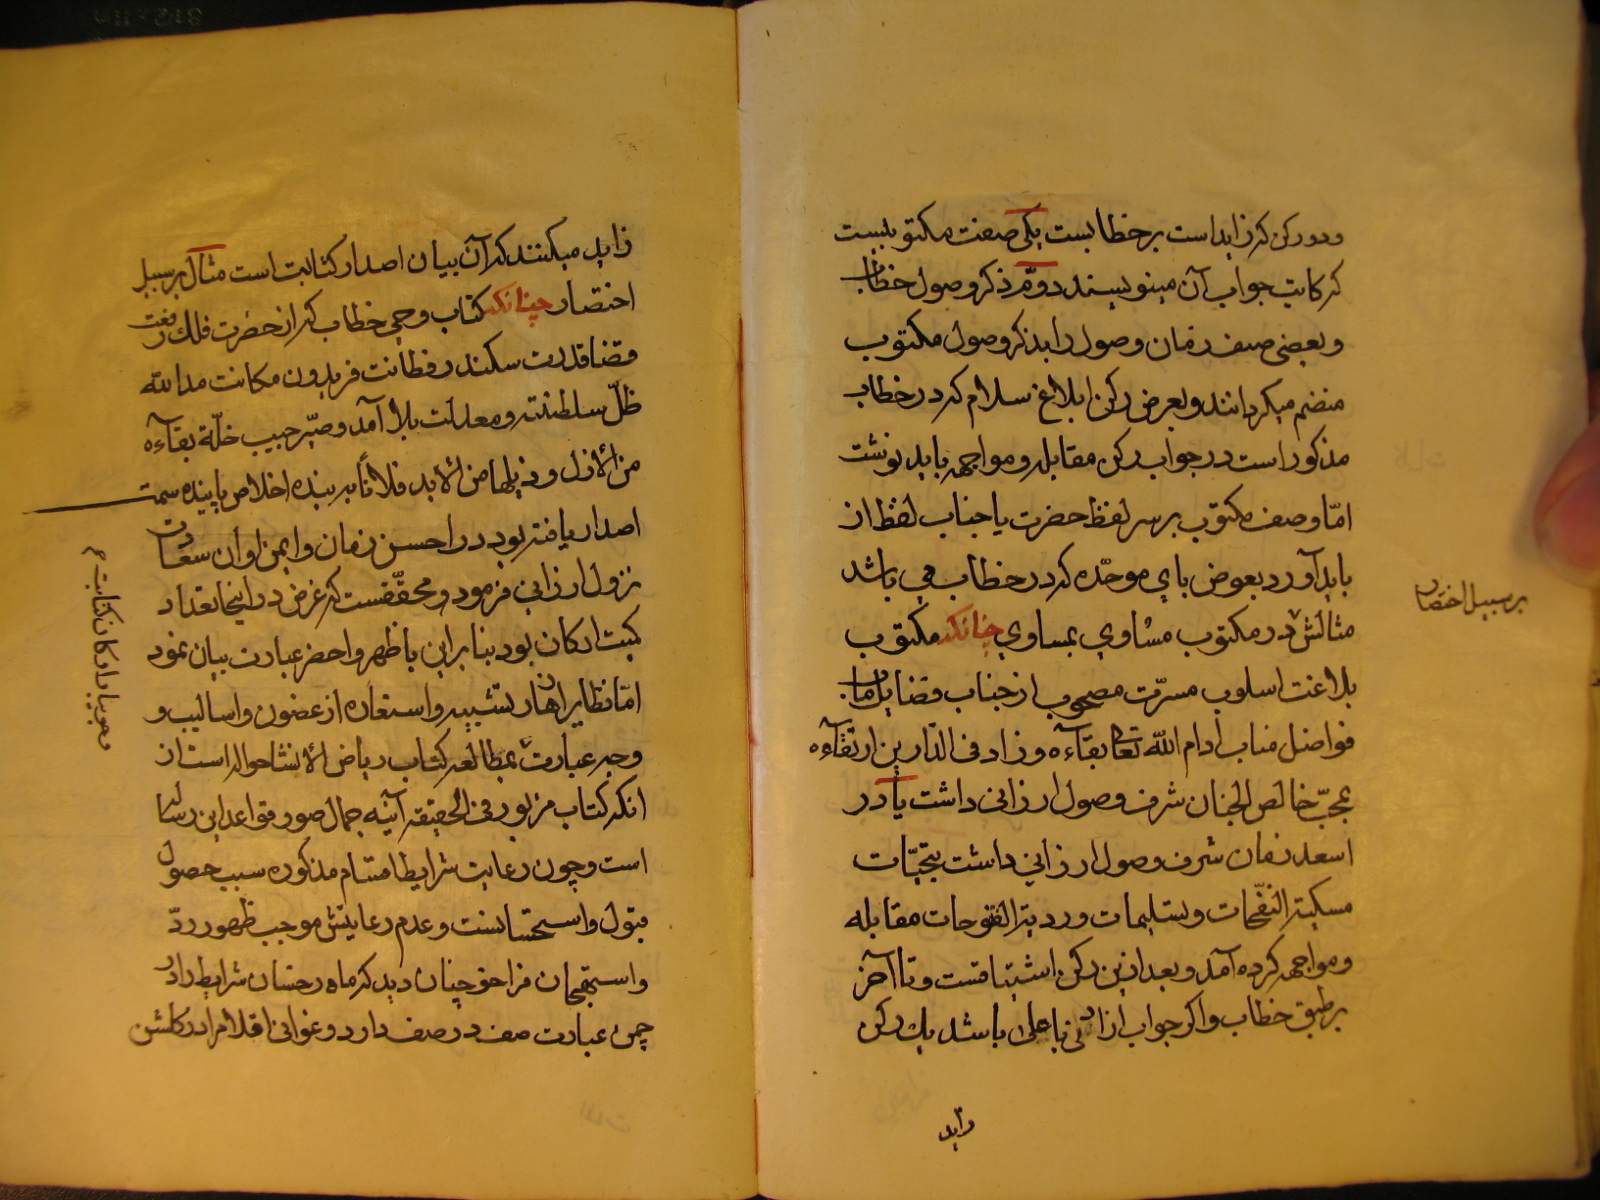 ودو رکن که زایداست بر خطابست یکی صفت مکتوبیست
که کاتب جواب آن مینویسند دوّم ذکر وصول خطاب
وبعضی صفت زمان وصول را بذکر وصول مکتوب
منضم میکردانند وبعوض رکن ابلاغ سلام که در خطاب
مذکور است در جواب رکن مقابله ومواجهه باید نوشت
امّا وصف مکتوب بر سر لفظ حضرت یا جناب لفظ از
باید آورد بعوض بای موحّده که در خطاب می باشد
مثالش در مکتوب مساوي بمساوي چنانکه مکتوب
بلاغت اسلوب مسرّت مصحوب از جناب فضایل مآب
فواضل مناب أدام اللّه تعالى بقآءه وزاد فی الدّارین ارتقآءه
بمحبّ خالص الجنان شرف وصول ارزانی داشت یا در
اسعد زمان شرف وصول ارزانی داشت بتحیّات
مسکیة النفحات وبتسلیمات وردیة الفوحات مقابله
ومواجهه کرده آمد وبعد ازین رکن اشتیاقست وتا آخر
بر طبق خطاب واکر جواب از ادنی باعلی باشد یك رکن
زاید
بر سبیل اختصار
زاید میکنند که آن بیان اصدار کتابت است مثال بر سبیل
اختصار چنانکه کتاب وحی خطاب که از حضرت فلك رفعت
قضا قدرت سکندر فطانت فریدون مکانت مد اللّه
ظلّ سلطنته ومعدلته بلا آمد وصیّر حبیب خلّة بقآءه
من الأزل وذیلها من الأبد فلاناً به بنده اخلاص پاینده سمت
اصدار یافته بود در احسن زمان وایمن اوان سعادت
نزول ارزانی فرمود ومحقّقست که غرض در اینجا تعداد
کمیت ارکان بود بنابراین باظهر واحضر عبارت بیان نمود
امّا نظایر آن از تشبیه واستعاره از غضون واسالیب و
وجه عبارت بمطالعه کتاب ریاض الانشا حواله است از
انکه کتاب مزبور فی الحقیقه آئینه جمال صور قواعد این رساله
است وچون رعایت شرایط اقسام مذکوره سبب حصول
قبول واستحسانست وعدم رعایتش موجب ظهور ردّ
واستقبحان فراخور چنان دید که ماه رخسان شرایط را در
چمن عبارت صف در صف دارد وغوانی اقلام را در کلشن
وجوبا ارکان کتابت